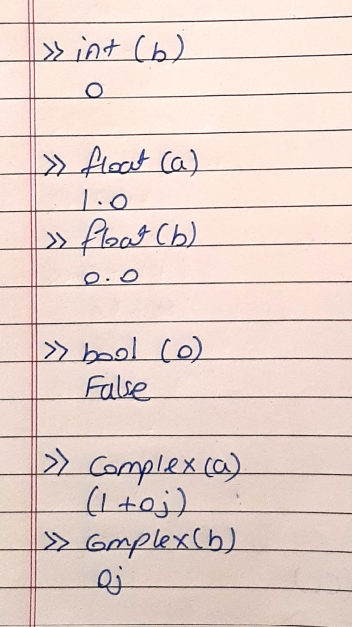 >> int (b)
0
>> float (a)
1.0
>> float (b)
0.0
>> bool (0)
False
>> Complex (a)
(1+0j)
>> Complex (b)
0j